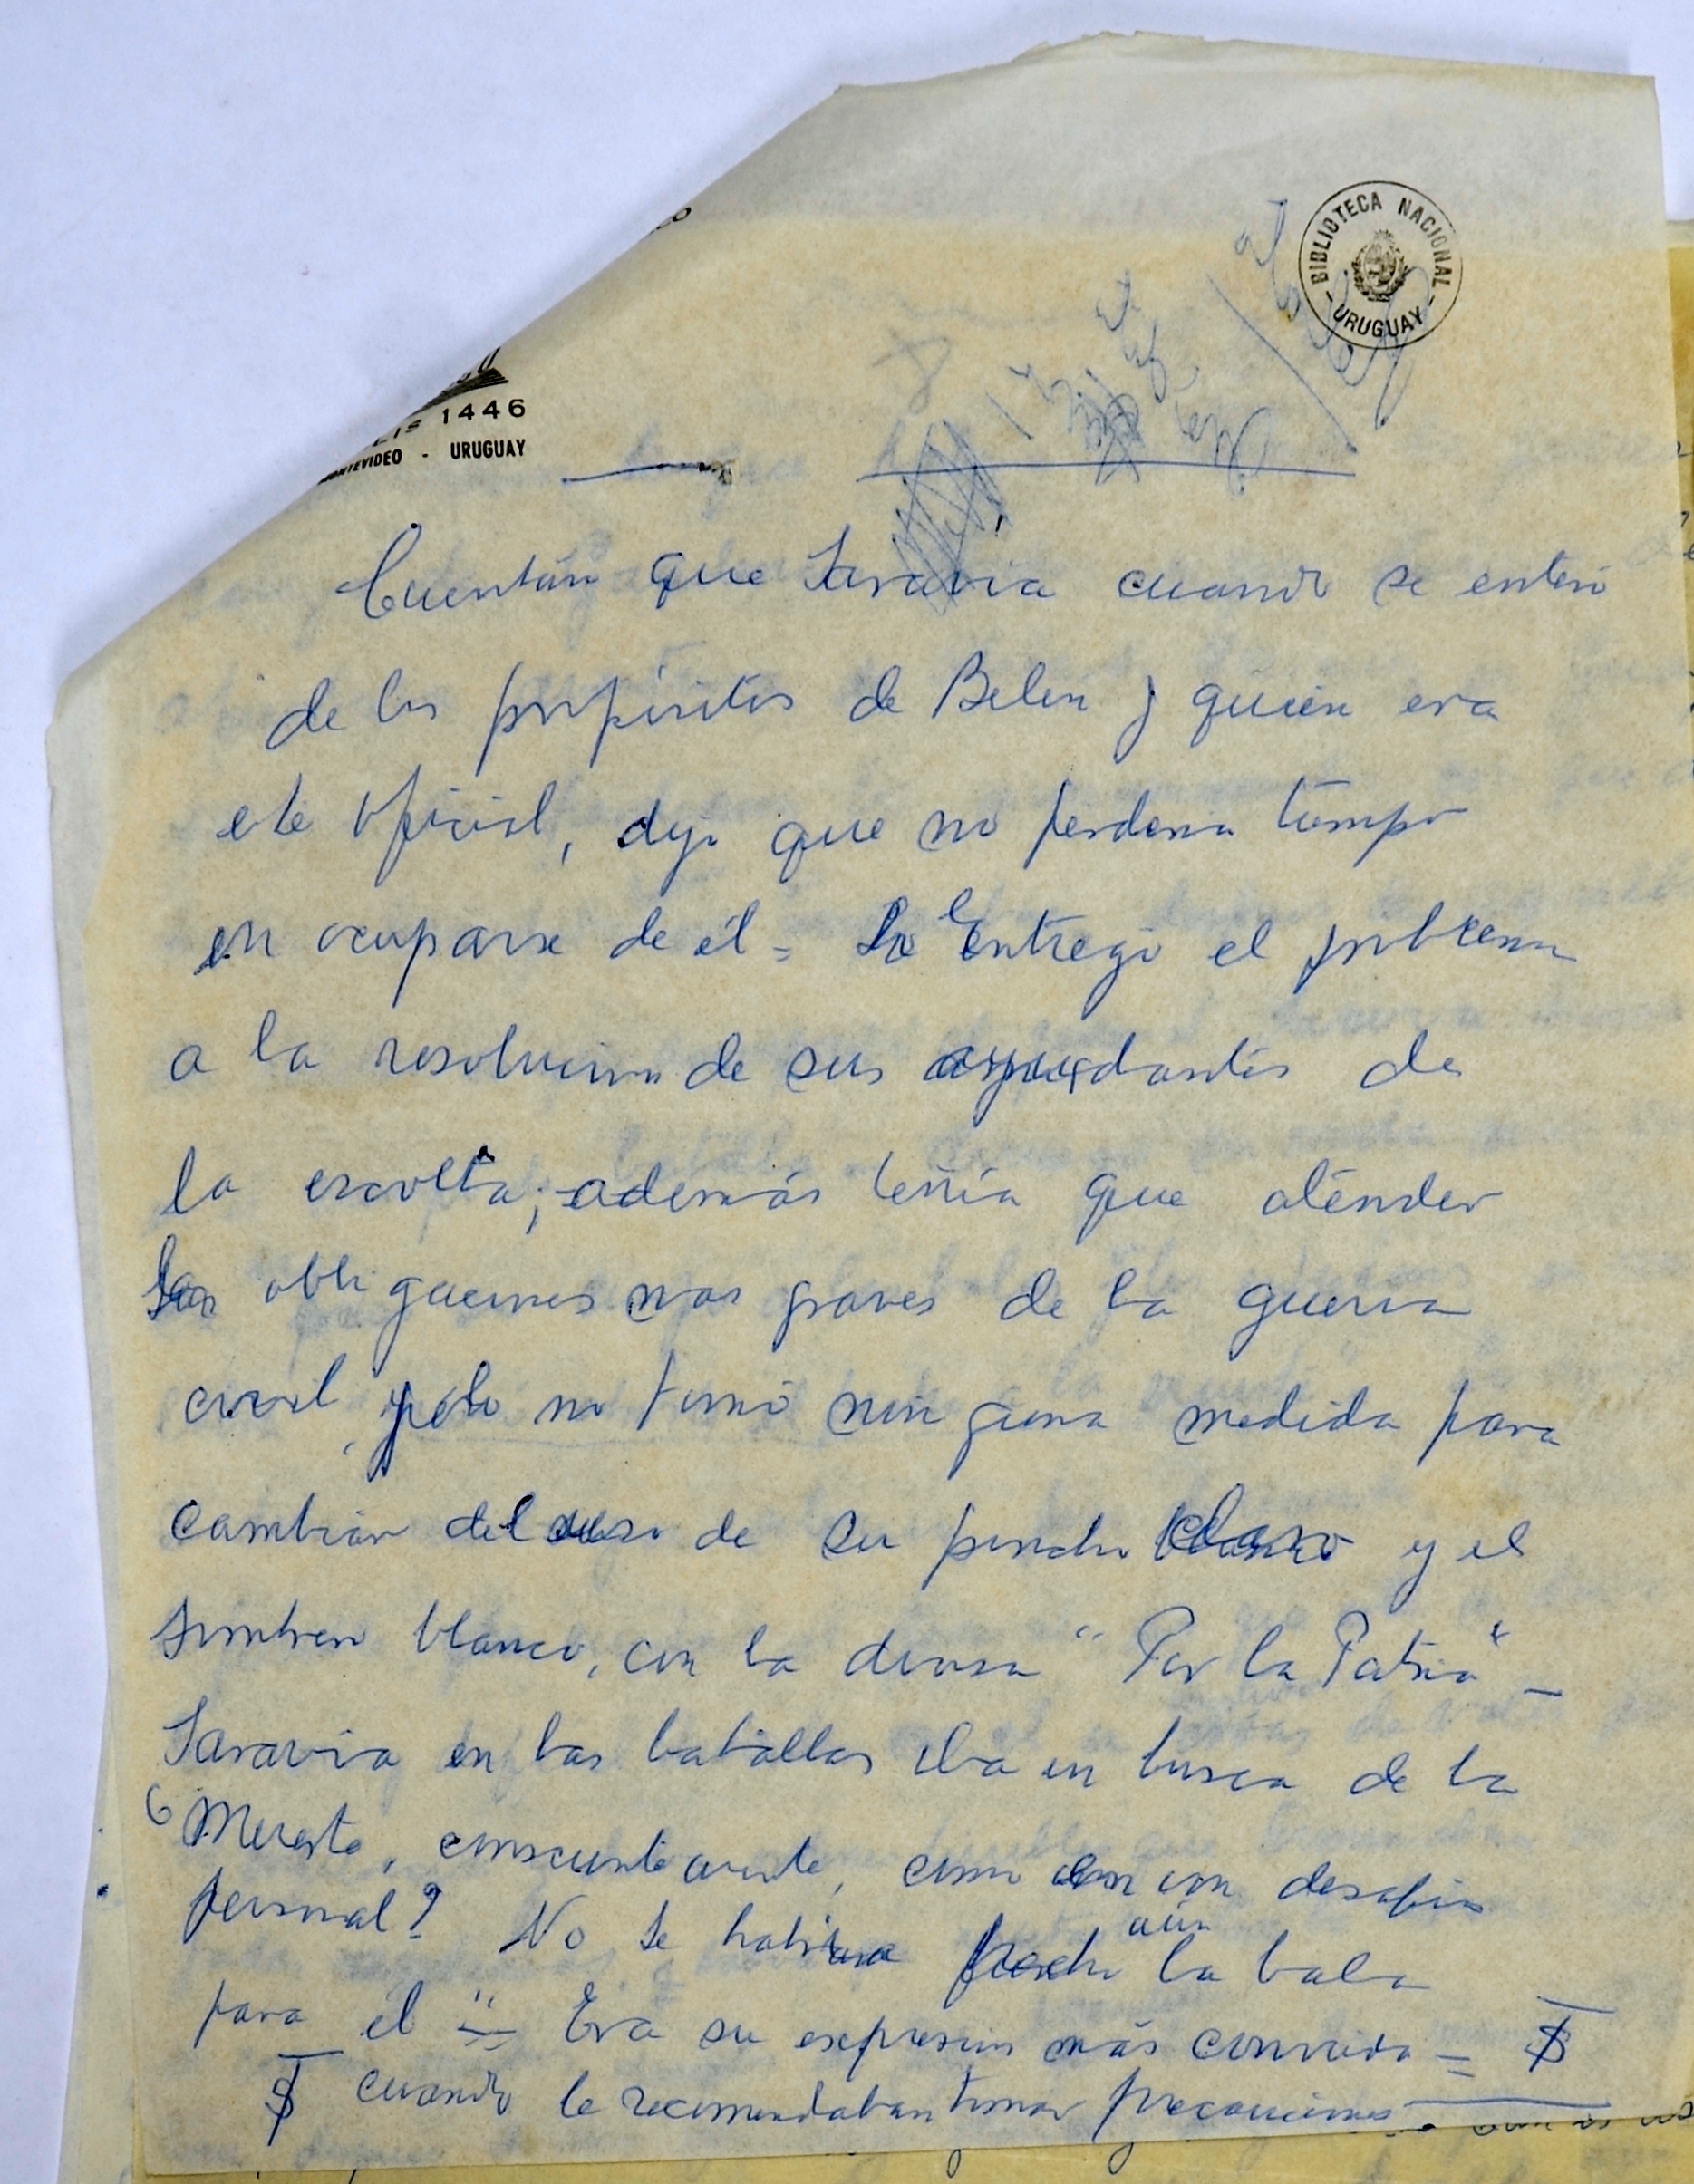 BIBLIOTECA NACIONAL
- URUGUAY -
1446
MONTEVIDEO - URUGUAY
Cuentan que Saravia cuando se enteró
de los propósitos de Belen y quién era
este oficial, dijo que no perdería tiempo
en ocuparse de él = Le entregó el problema
a la resolucion de sus ayudantes de
la escolta; además tenía que atender
las obligaciones mas graves de la guerra
civil, pero no tomó ninguna medida para
cambiar del uso de su poncho claro y el
sombrero blanco, con la divisa "Por la Patria" _
Saravia en las batallas iba en busca de la
muerte, conscientemente, como en un desafío
personal? No se habia hecho aún la bala
para él" = Era su expresion más conocida =
cuando le recomendaban tomar precauciones